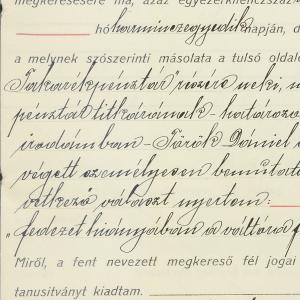 megkeresésére ma, azaz egyezerkilencszáz
hó harminczegyedik napján, d
a melynek szószerinti másolata a tulsó oldalo
Takarékpénztár" részére neki, m
pénztár titkárának - határozo
irodámban - Török Dániel
végett személyesen bemutatta
vetkező választ nyertem:
"fedezet hiányában a váltóra f
Miről, a fent nevezett megkereső fél jogai
tanusitványt kiadtam.